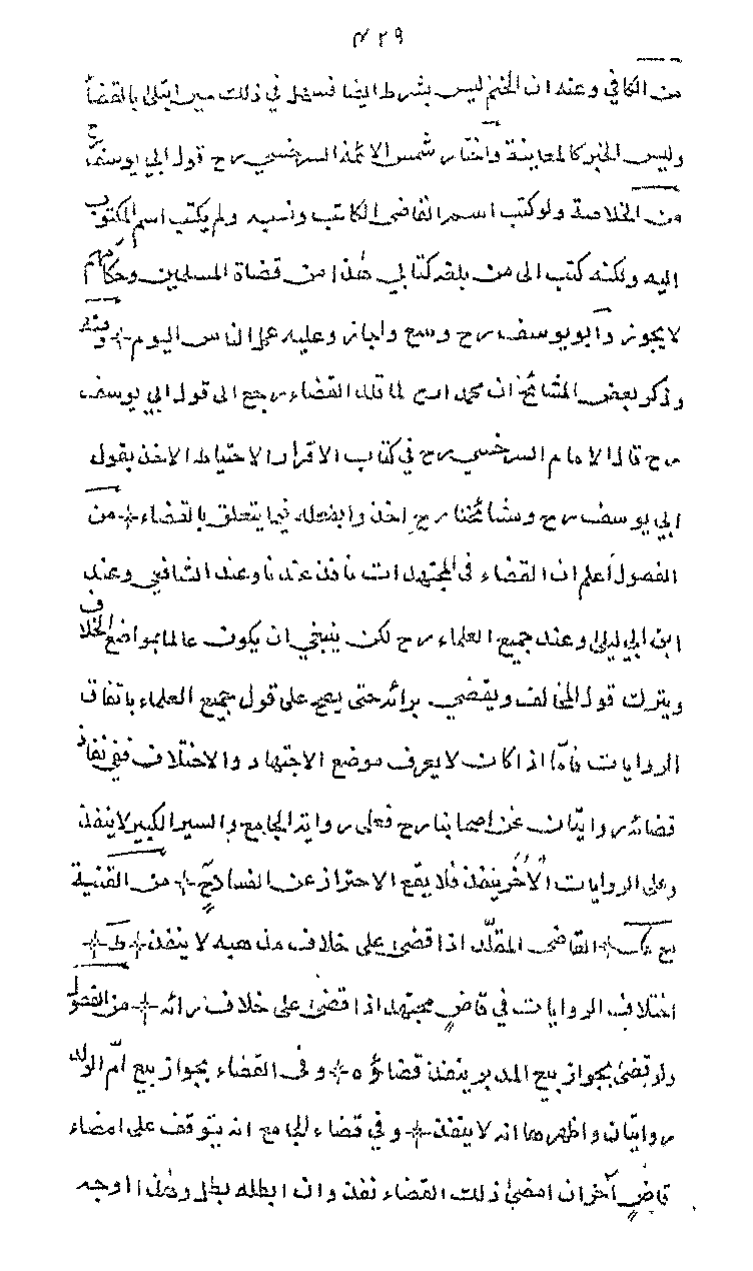 ٢٩
من الكافي وعنه ان الختم ليس بشرط ايضا فسهل في ذلك حين ابتلى بالقضاء
وليس الخبر كالمعاينة واختار شمس الائمة السرخسي رح قول ابي يوسف رح
من الخلاصة ولو كتب اسم القاضي الكاتب ونسبه ولم يكتب اسم المكتوب
اليه ولكنه كتب الى من بلغه كتابي هذا من قضاة المسلمين وحكامهم
لا يجوز وابو يوسف رح وسع واجاز وعليه عمل الناس اليوم ومنه
وذكر بعض المشائخ ان محمدا رح لما قلد القضاء رجع الى قول ابي يوسف
رح قال الامام السرخسي رح في كتاب الاقرار الاحتياط الاخذ بقول
ابي يوسف رح ومشائخنا رح اخذوا بفعله فيما يتعلق بالقضاء من
الفصول أعلم ان القضاء فى المجتهدات نافذ عندنا وعند الشافعي وعند
ابن ابي ليلى وعند جميع العلماء رح لكن ينبغي ان يكون عالما بمواضع الخلاف
ويترك قول المخالف ويقضي برائه حتى يصح على قول جميع العلماء باتفاق
الروايات فأمّا اذا كان لا يعرف موضع الاجتهاد والاختلاف ففي نفاذ
قضائه روايتان عن اصحابنا رح فعلى رواية الجامع والسير الكبير لا ينفذ
وعلى الروايات الأخر ينفذ فلا يقع الاحتراز عن الفساد من القنية
بع القاضى المقلّد اذا قضى على خلاف مذهبه لا ينفذ ط
اختلاف الروايات في قاضٍ مجتهد اذا قضى على خلاف رائه من الفصول
ولو قضى بجواز بيع المدبر ينفذ قضاؤه وفى القضاء بجواز بيع أمّ الولد
روايتان واظهرهما انه لا ينفذ وفي قضاء الجامع انه يتوقف على امضاء
قاضٍ آخر ان امضى ذلك القضاء نفذ وان ابطله بطل وهذا اوجه